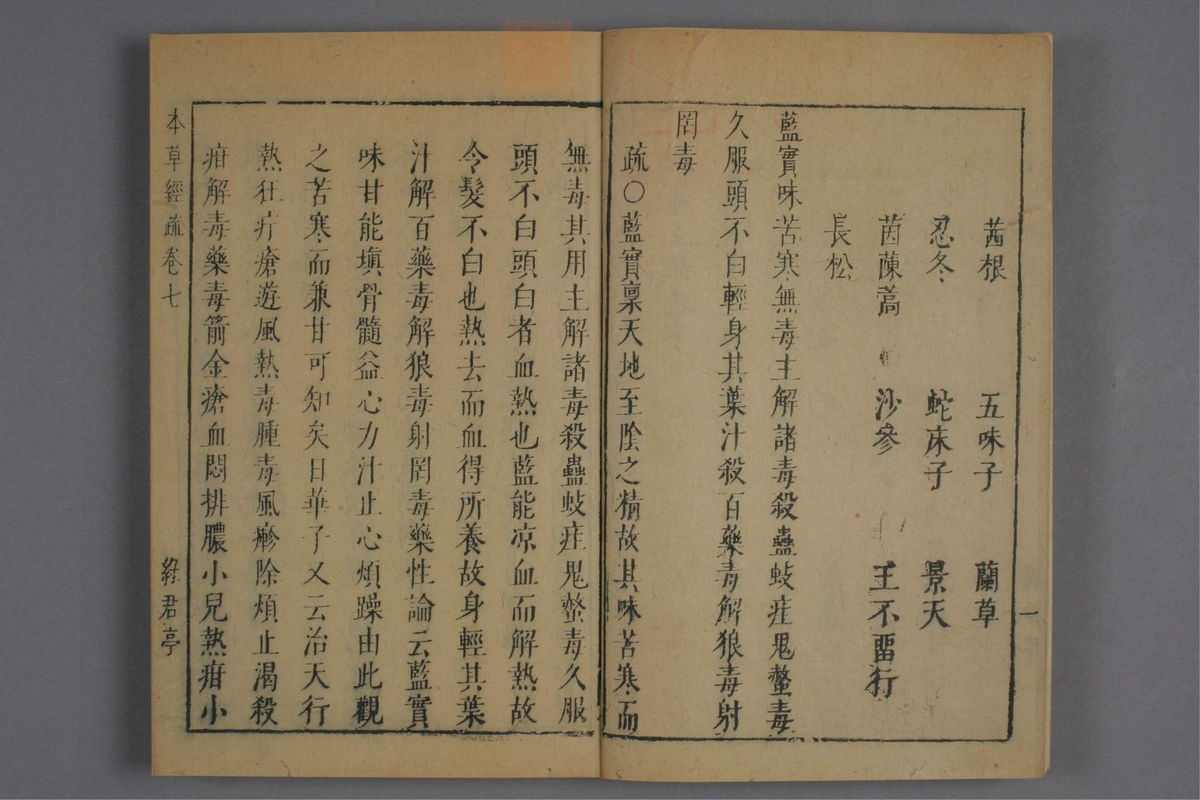 茜根　五味子　蘭草
忍冬　蛇床子　景天
茵蔯蒿　沙參　王不畱行
長松
藍實味苦寒無毒主解諸毒殺蠱蚑疰鬼螫毒
久服頭不白輕身其葉汁殺百藥毒解狼毒射
罔毒
疏○藍實稟天地至陰之精故其味苦寒而
一
無毒其用主解諸毒殺蠱蚑疰鬼螫毒久服
頭不白頭白者血熱也藍能凉血而解熱故
令髮不白也熱去而血得所養故身輕其葉
汁解百藥毒解狼毒射罔毒藥性論云藍實
味甘能塡骨髓益心力汁止心煩躁由此觀
之苦寒而兼甘可知矣日華子又云治天行
熱狂疔瘡遊風熱毒腫毒風瘮除煩止渴殺
疳解毒藥毒箭金瘡血悶排膿小兒熱疳小
本草經疏卷七　綠君亭